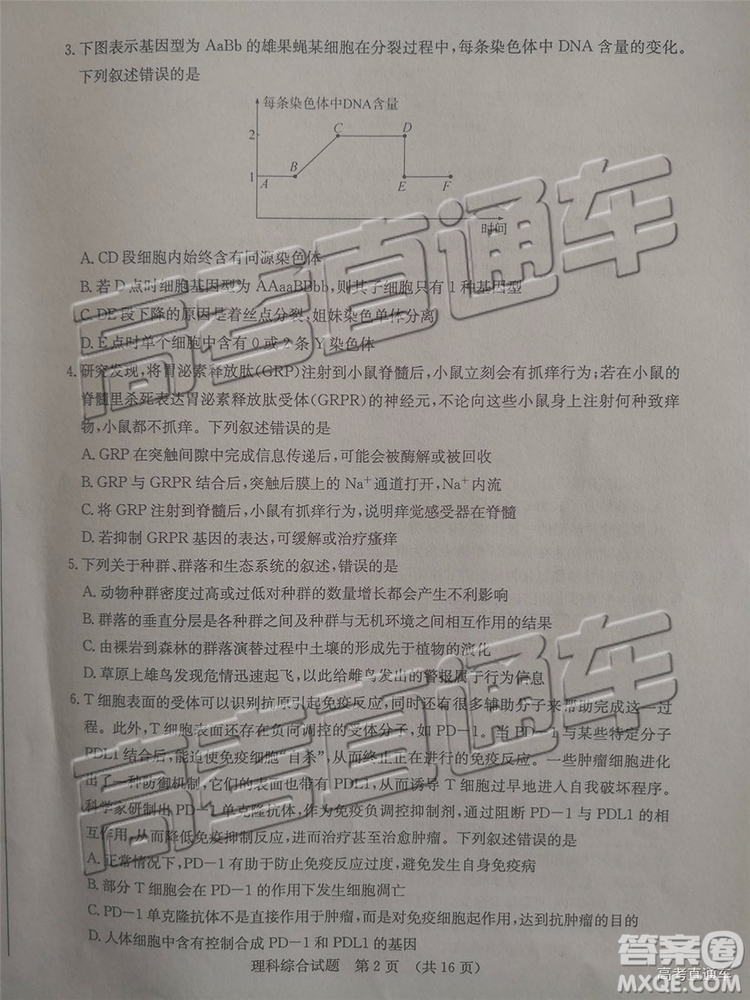 3. 下图表示基因型为 AaBb 的雄果蝇某细胞在分裂过程中，每条染色体中 DNA 含量的变化。
下列叙述错误的是
每条染色体中DNA含量
2
1
A
B
C
D
E
F
时间
A. CD 段细胞内始终含有同源染色体
B. 若 D 点时细胞基因型为 AAaaBBbb，则其子细胞只有 1 种基因型
C. DE 段下降的原因是着丝点分裂，姐妹染色单体分离
D. E 点时单个细胞中含有 0 或 2 条 Y 染色体
4. 研究发现，将胃泌素释放肽(GRP)注射到小鼠脊髓后，小鼠立刻会有抓痒行为；若在小鼠的
脊髓里杀死表达胃泌素释放肽受体(GRPR)的神经元，不论向这些小鼠注射何种致痒
物，小鼠都不抓痒。下列叙述错误的是
A. GRP 在突触间隙中完成信息传递后，可能会被酶解或被回收
B. GRP 与 GRPR 结合后，突触后膜上的 Na⁺ 通道打开，Na⁺ 内流
C. 将 GRP 注射到脊髓后，小鼠有抓痒行为，说明痒觉感受器在脊髓
D. 若抑制 GRPR 基因的表达，可缓解或治疗瘙痒
5. 下列关于种群、群落和生态系统的叙述，错误的是
A. 动物种群密度过高或过低对种群的数量增长都会产生不利影响
B. 群落的垂直分层是各种群之间及种群与无机环境之间相互作用的结果
C. 由裸岩到森林的群落演替过程中土壤的形成先于植物的演化
D. 草原上雄鸟发现危情迅速起飞，以此给雌鸟发出的警报属于行为信息
6. T 细胞表面的受体可以识别抗原引起免疫反应，同时还有很多辅助分子来帮助完成这一过
程。此外，T 细胞表面还存在负向调控的受体分子，如 PD－1。当 PD－1 与某些特定分子
PDL1 结合后，能迫使免疫细胞“自杀”，从而终止正在进行的免疫反应。一些肿瘤细胞进化
出了一种防御机制，它们的表面也带有 PDL1，从而诱导 T 细胞过早地进入自我破坏程序。
科学家研制出 PD－1 单克隆抗体，作为免疫负调控抑制剂，通过阻断 PD－1 与 PDL1 的相
互作用，从而降低免疫抑制反应，进而治疗甚至治愈肿瘤。下列叙述错误的是
A. 正常情况下，PD－1 有助于防止免疫反应过度，避免发生自身免疫病
B. 部分 T 细胞会在 PD－1 的作用下发生细胞凋亡
C. PD－1 单克隆抗体不是直接作用于肿瘤，而是对免疫细胞或免疫系统起到调节的目的
D. 人体细胞中含有控制 PD－1 和 PDL1 的基因
理科综合试题 第 2 页 （共 16 页）
高考直通车
高考直通车
答案圈
高考直通车
MXQE.COM